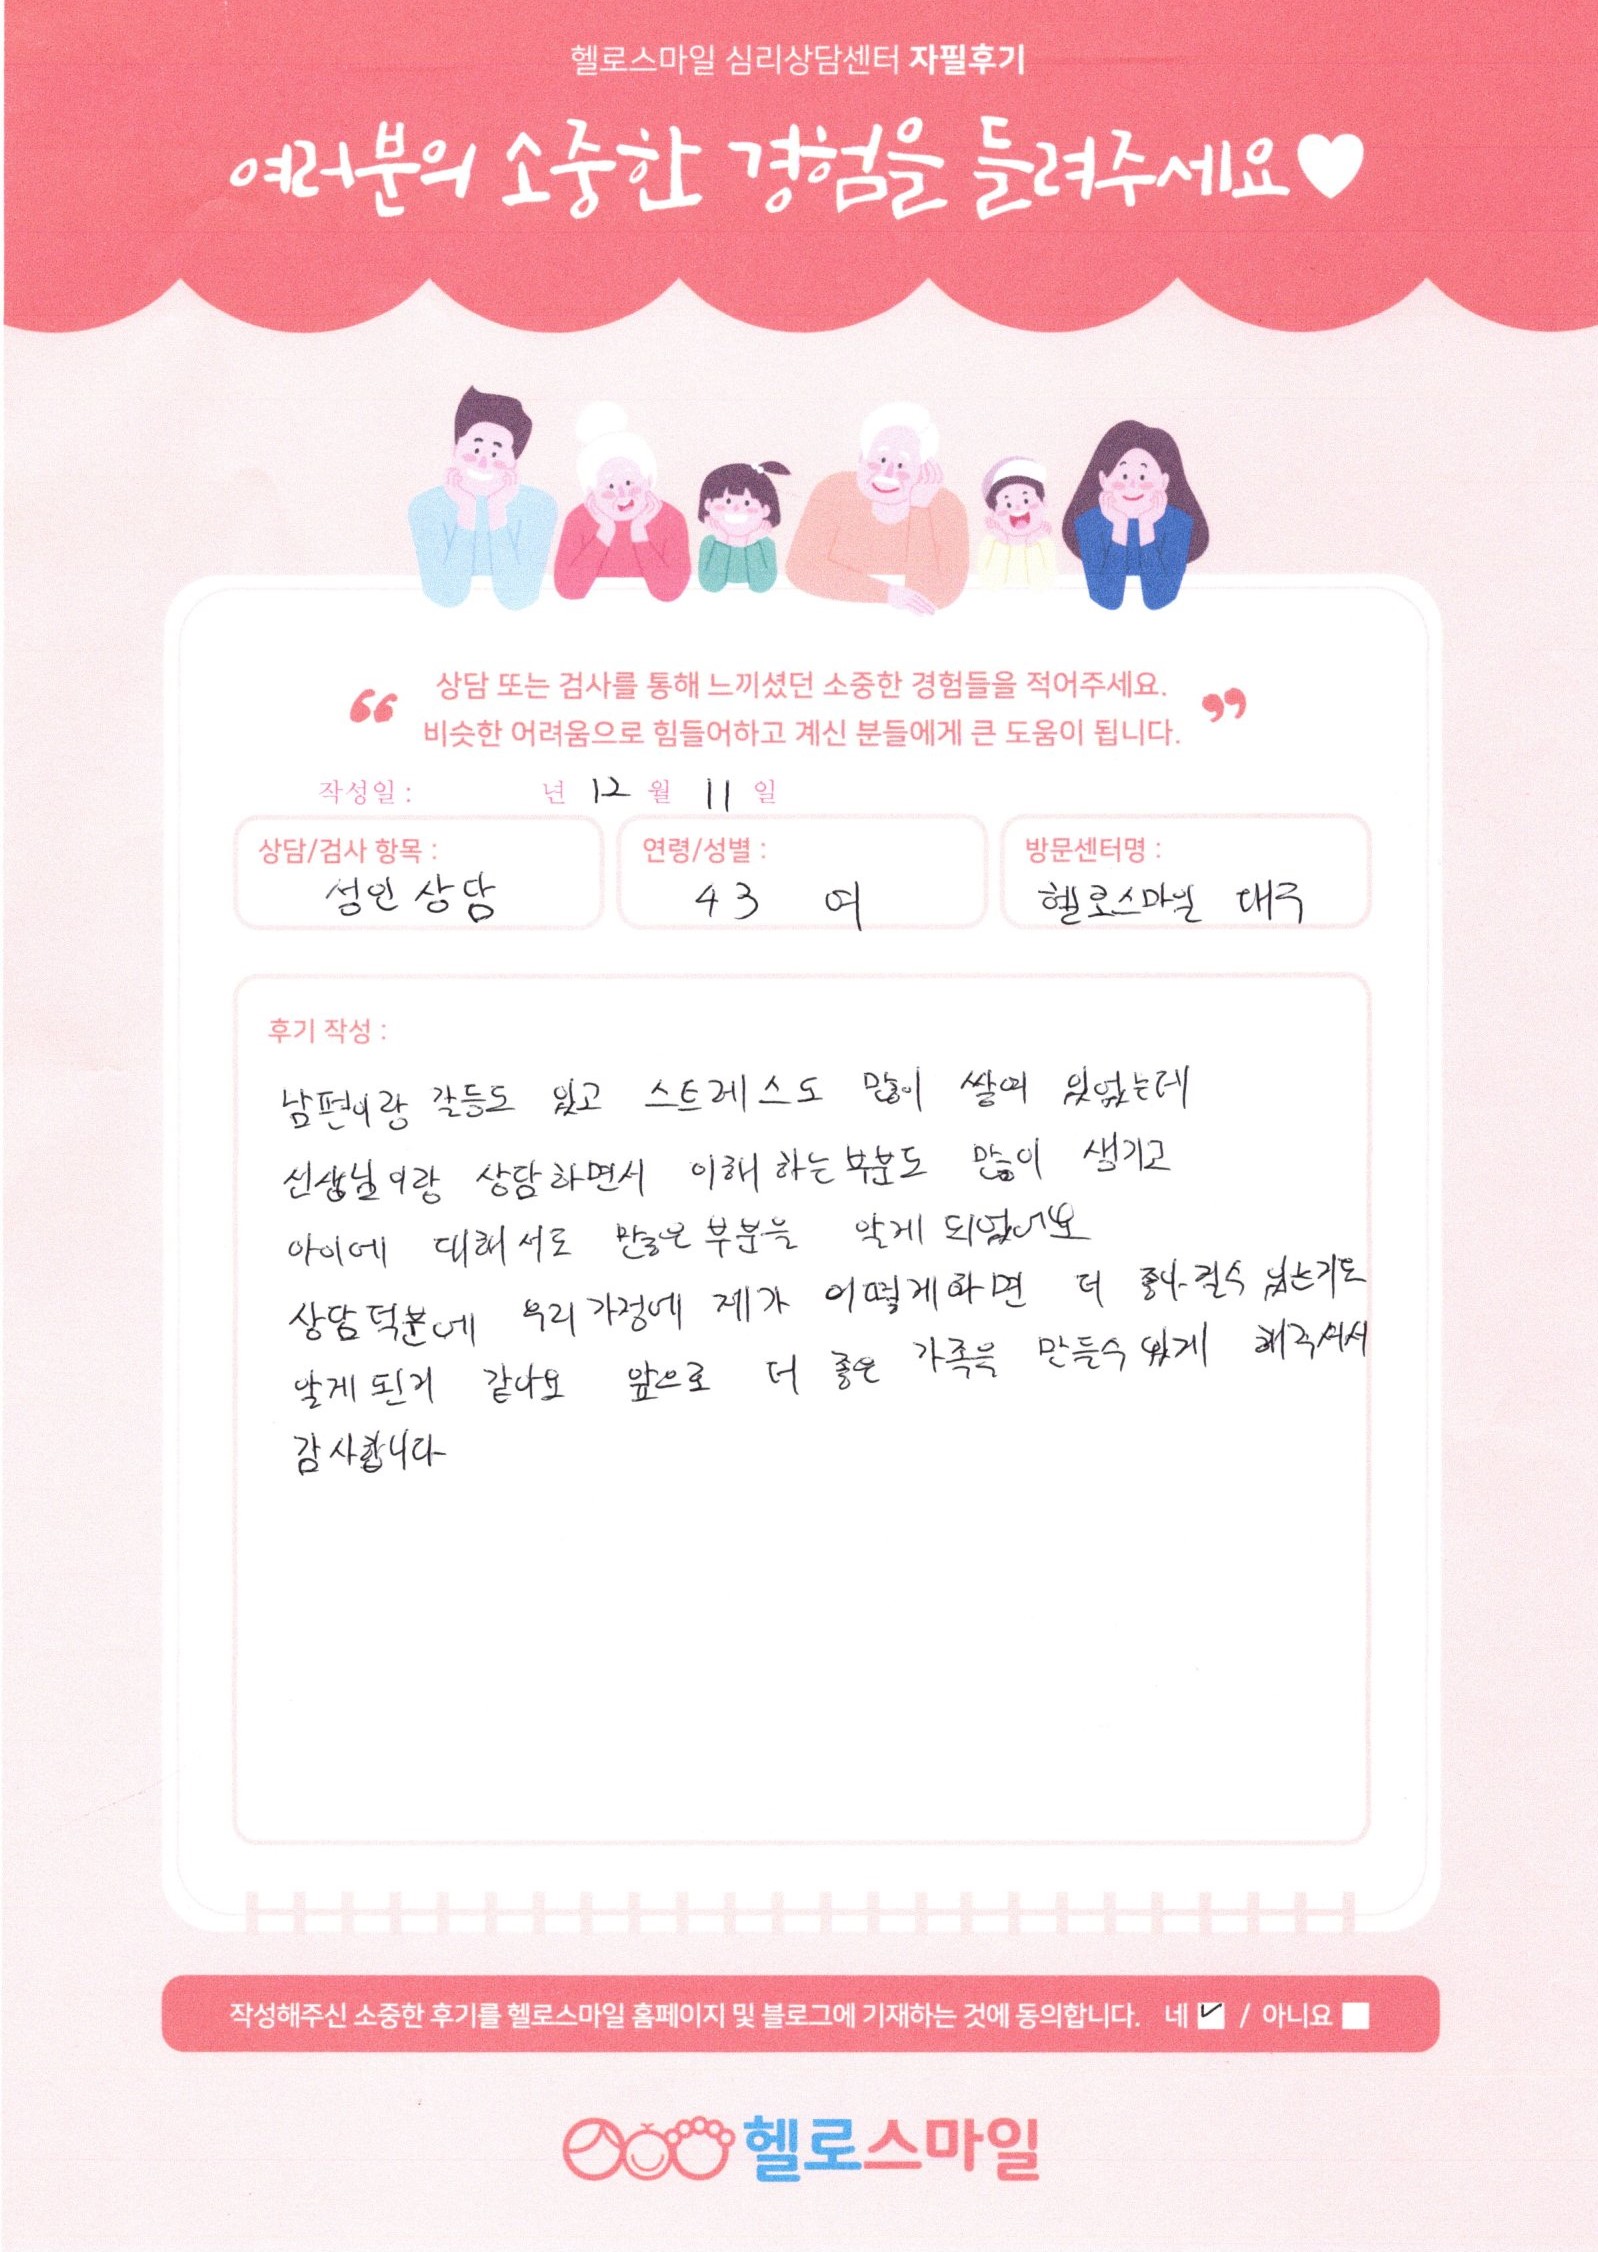 헬로스마일 심리상담센터 자필후기
여러분의 소중한 경험을 들려주세요
상담 또는 검사를 통해 느끼셨던 소중한 경험들을 적어주세요.
비슷한 어려움으로 힘들어하고 계신 분들에게 큰 도움이 됩니다.
작성일 : 년 12 월 11 일
상담/검사 항목 : 연령/성별 : 방문센터명 :
성인 상담 43 여 헬로스마일 대구
후기 작성 :
남편이랑 갈등도 있고 스트레스도 많이 쌓여 있었는데
선생님이랑 상담하면서 이해하는 부분도 많이 생기고
아이에 대해서도 많은 부분을 알게 되었어요
상담덕분에 우리가정에 제가 어떻게하면 더 좋아질수 있는지도
알게 된거 같아요 앞으로 더 좋은 가족을 만들수 있게 해주셔서
감사합니다
작성해주신 소중한 후기를 헬로스마일 홈페이지 및 블로그에 기재하는 것에 동의합니다. 네 ✓ / 아니요
헬로스마일